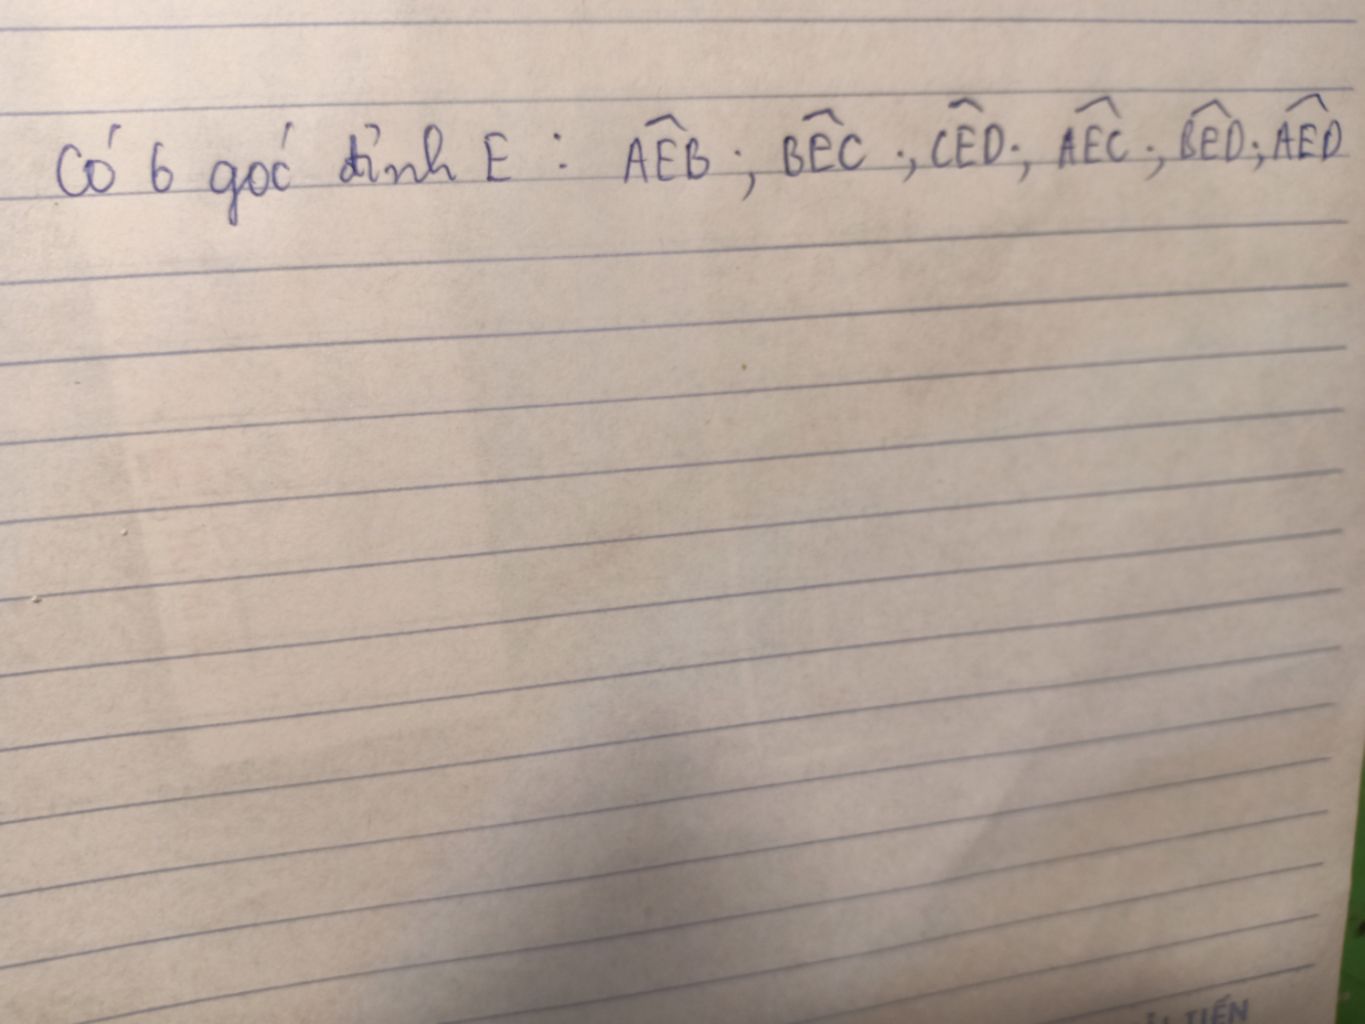 Có 6 góc đỉnh E : $\widehat{AEB}$ ; $\widehat{BEC}$ ; $\widehat{CED}$ ; $\widehat{AEC}$ ; $\widehat{BED}$ ; $\widehat{AED}$
TIẾN